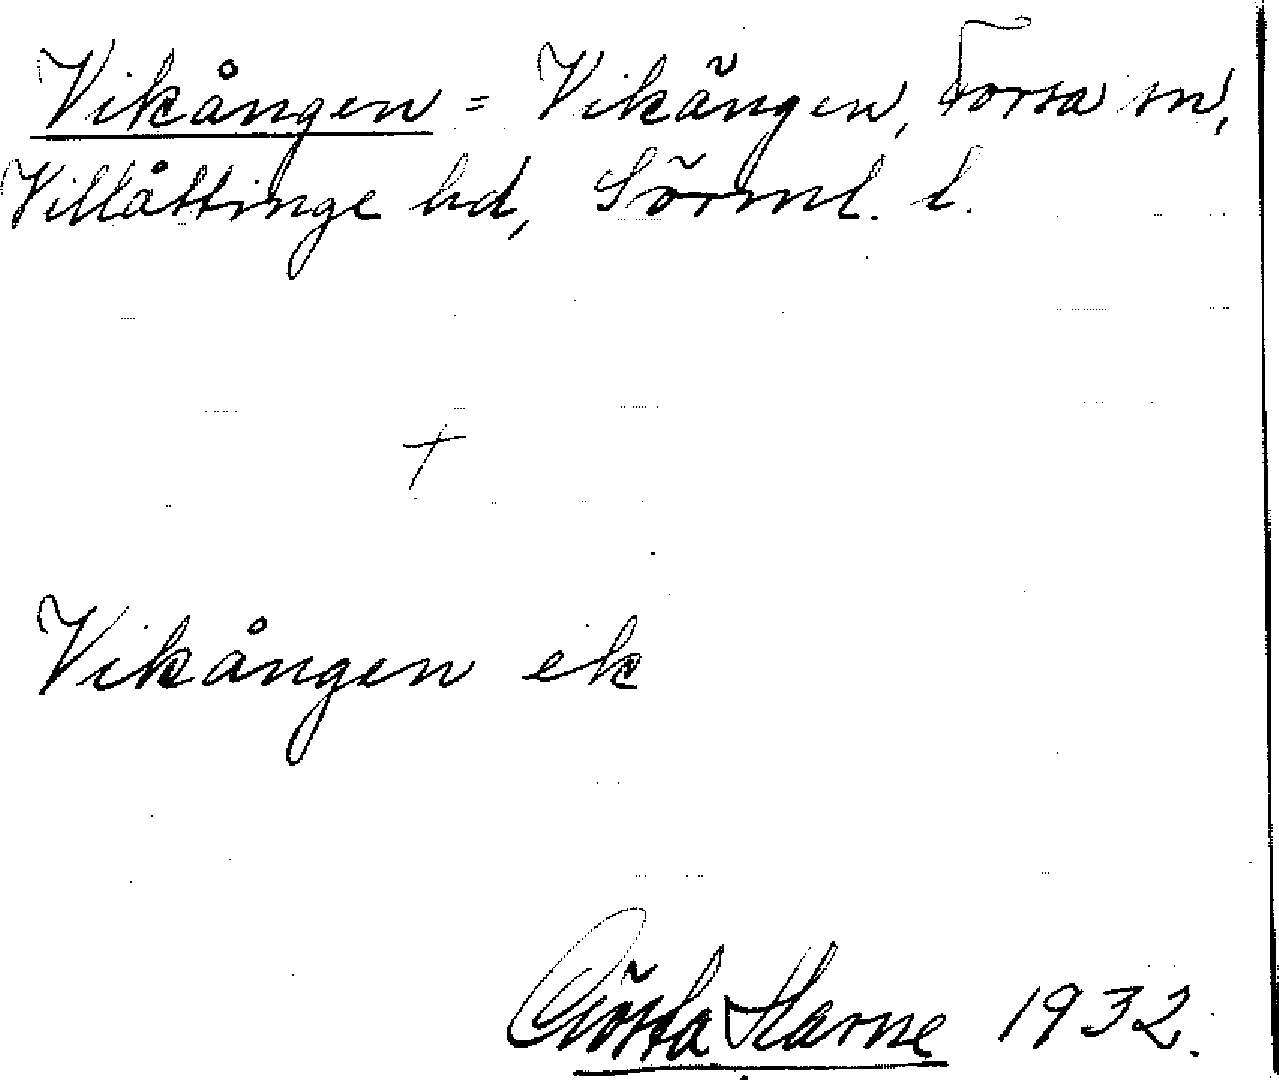 Vikången = Vikängen, Torsa sn,
Villåttinge hd, Sörml. l.
+
Vikången ek
Gösta Karne 1932.